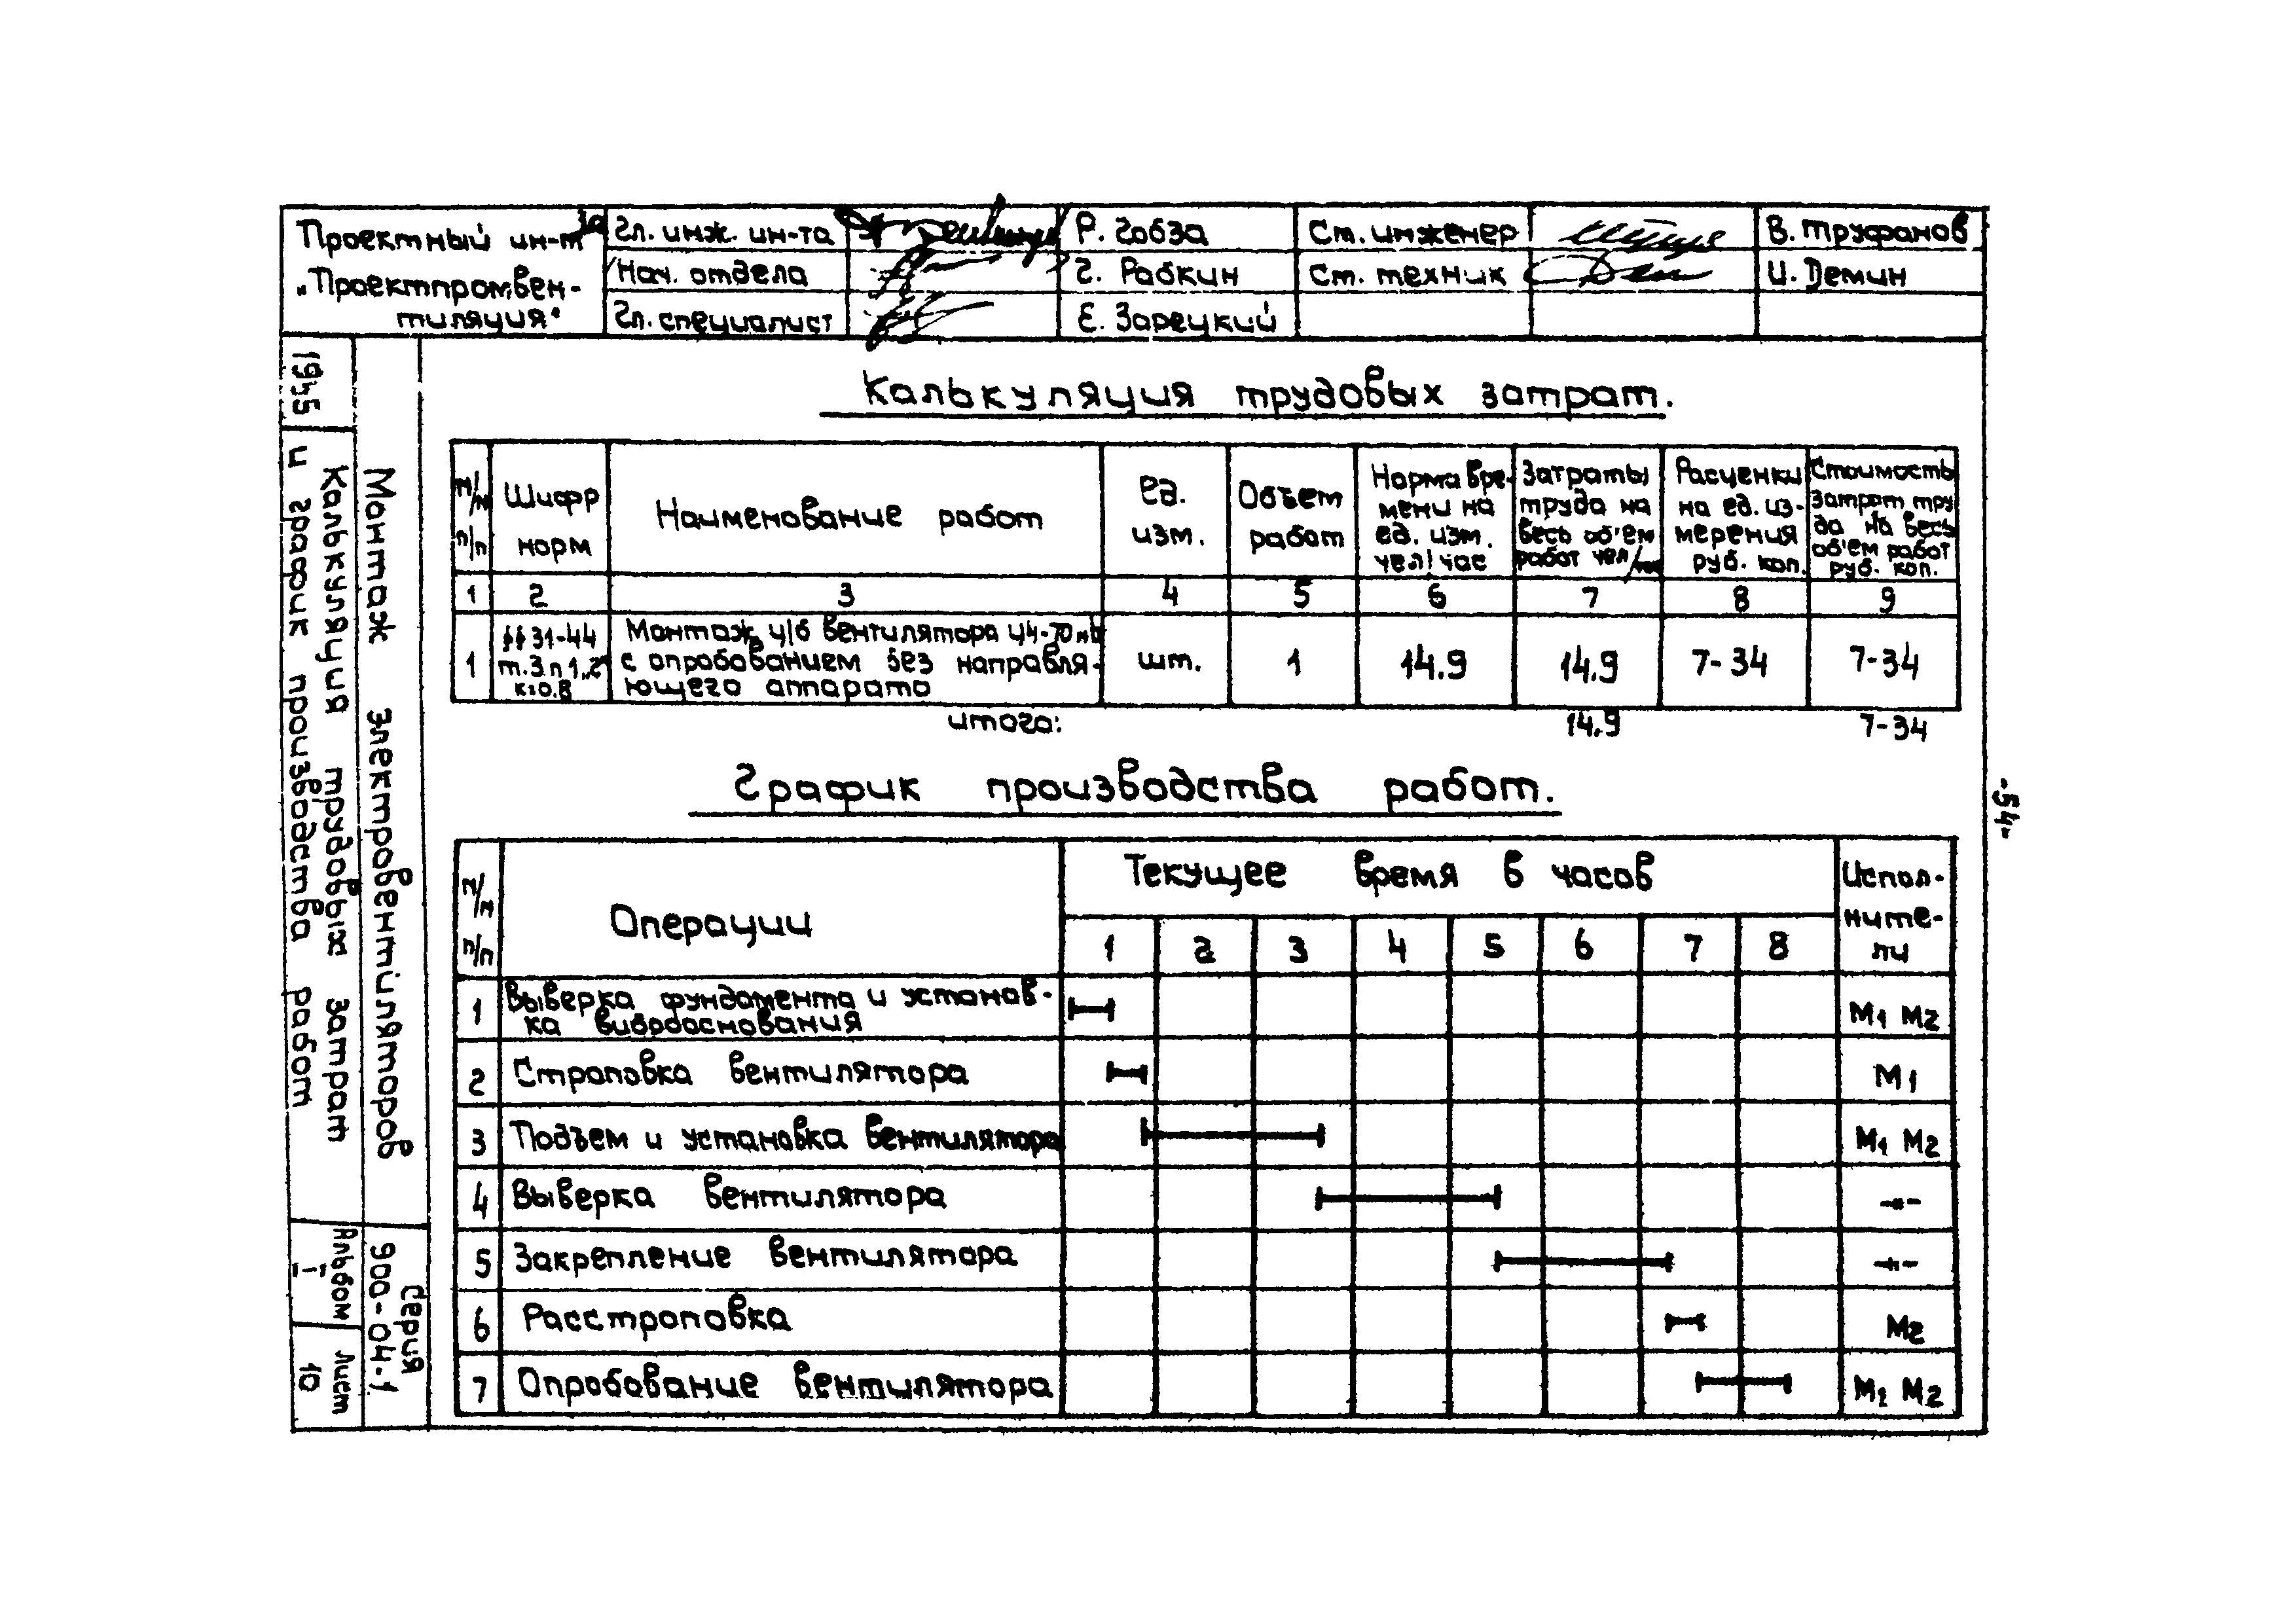 Проектный ин-т
„Проектпромвен-
тиляция"
Гл. инж. ин-та
Р. Гобза
Ст. инженер
В. Труфанов
Нач. отдела
Г. Рабкин
Ст. техник
И. Демин
Гл. специалист
Е. Зарецкий
Калькуляция трудовых затрат.
н/н
п/п
Шифр
норм
Наименование работ
ед.
изм.
Объем
работ
Норма вре-
мени на
ед. изм.
чел/час
Затраты
труда на
весь об'ем
работ чел/час
Расценки
на ед. из-
мерения
руб. коп.
Стоимость
затрат тру
да на весь
об'ем работ
руб. коп.
1 2 3 4 5 6 7 8 9
1
§§ 31-44
т.3 п 1,
к=0.8
Монтаж ц/б вентилятора Ц4-70
с опробованием без направля-
ющего аппарата
шт.
1
14.9
14.9
7-34
7-34
итого:
14.9
7-34
График производства работ.
н/н
п/п
Операции
Текущее время в часов
1 2 3 4 5 6 7 8
Испол-
ните-
ли
1
Выверка фундамента и установ-
ка виброоснования
М1 М2
2 Строповка вентилятора М1
3 Подъем и установка вентилятора М1 М2
4 Выверка вентилятора -"-
5 Закрепление вентилятора -"-
6 Расстроповка М2
7 Опробование вентилятора М1 М2
Монтаж электровентиляторов
Калькуляция трудовых затрат
и график производства работ
Серия
900-04-1
Альбом
I
Лист
10
-54-